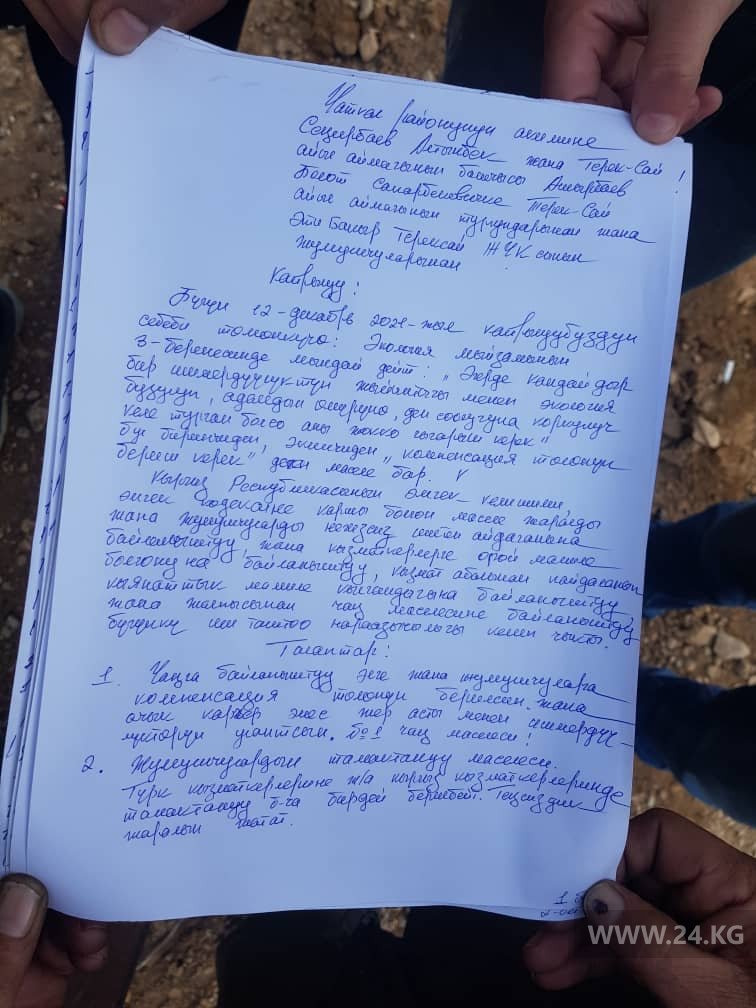 Чаткал районунун акимине
Алтынбек жана Терек-Сай !
айыл аймагынын башчысы Ашырбаев
Болот Сапарбековичке Терек-Сай
айыл аймагынын тургундарынан жана
Эти Бакыр Терексай ЖЧК сынын
жумушчуларынан
Кайрылуу:
Бүгүн 12-декабрь 2021-жыл кайрылуубуздун
себеби төмөнкүчө: Экология мыйзамынын
3-беренесинде мындай дейт: „Эгерде кандайдыр
бир ишмердүүлүктүн жыйынтыгы менен экология
бузулуп, адамдын өмүрүнө, ден соолугуна коркунуч
келе турган болсо аны жокко чыгарыш керек"
бул биринчиден, экинчиден „компенсация төлөнүп
бериш керек" деген маселе бар.
Кыргыз Республикасынын эмгек келишими
эмгек кодексине каршы болгон маселе жаралды
жана жумушчуларды негизсиз иштен айдаганына
байланыштуу, жана кызматкерлерге орой мамиле
болгонуна байланыштуу, кызмат абалынан пайдаланып
кыянаттык мамиле кылгандыгына байланыштуу
жана жалпысынан чаң маселесине байланыштуу
бүгүнкү иш таштоо нараазычылыгы келип чыкты.
Талаптар:
1. Чаңга байланыштуу элге жана жумушчуларга
компенсация төлөнүп берилсин. жана
ачык карьер эмес жер асты менен ишмердүү-
лүктөрүн улантсын. №1 чаң маселеси!
2. Жумушчулардын тамактануу маселеси.
Түрк кызматкерлерине ж/а кыргыз кызматкерлерине
тамактануу б-ча бирдей берилбейт. Теңсиздик
жаралып жатат.
WWW.24.KG